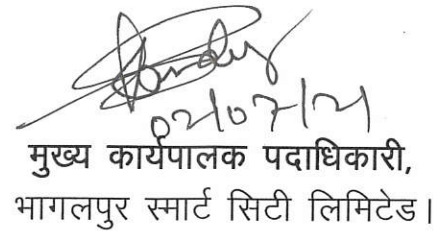 02/07/21
मुख्य कार्यपालक पदाधिकारी,
भागलपुर स्मार्ट सिटी लिमिटेड।